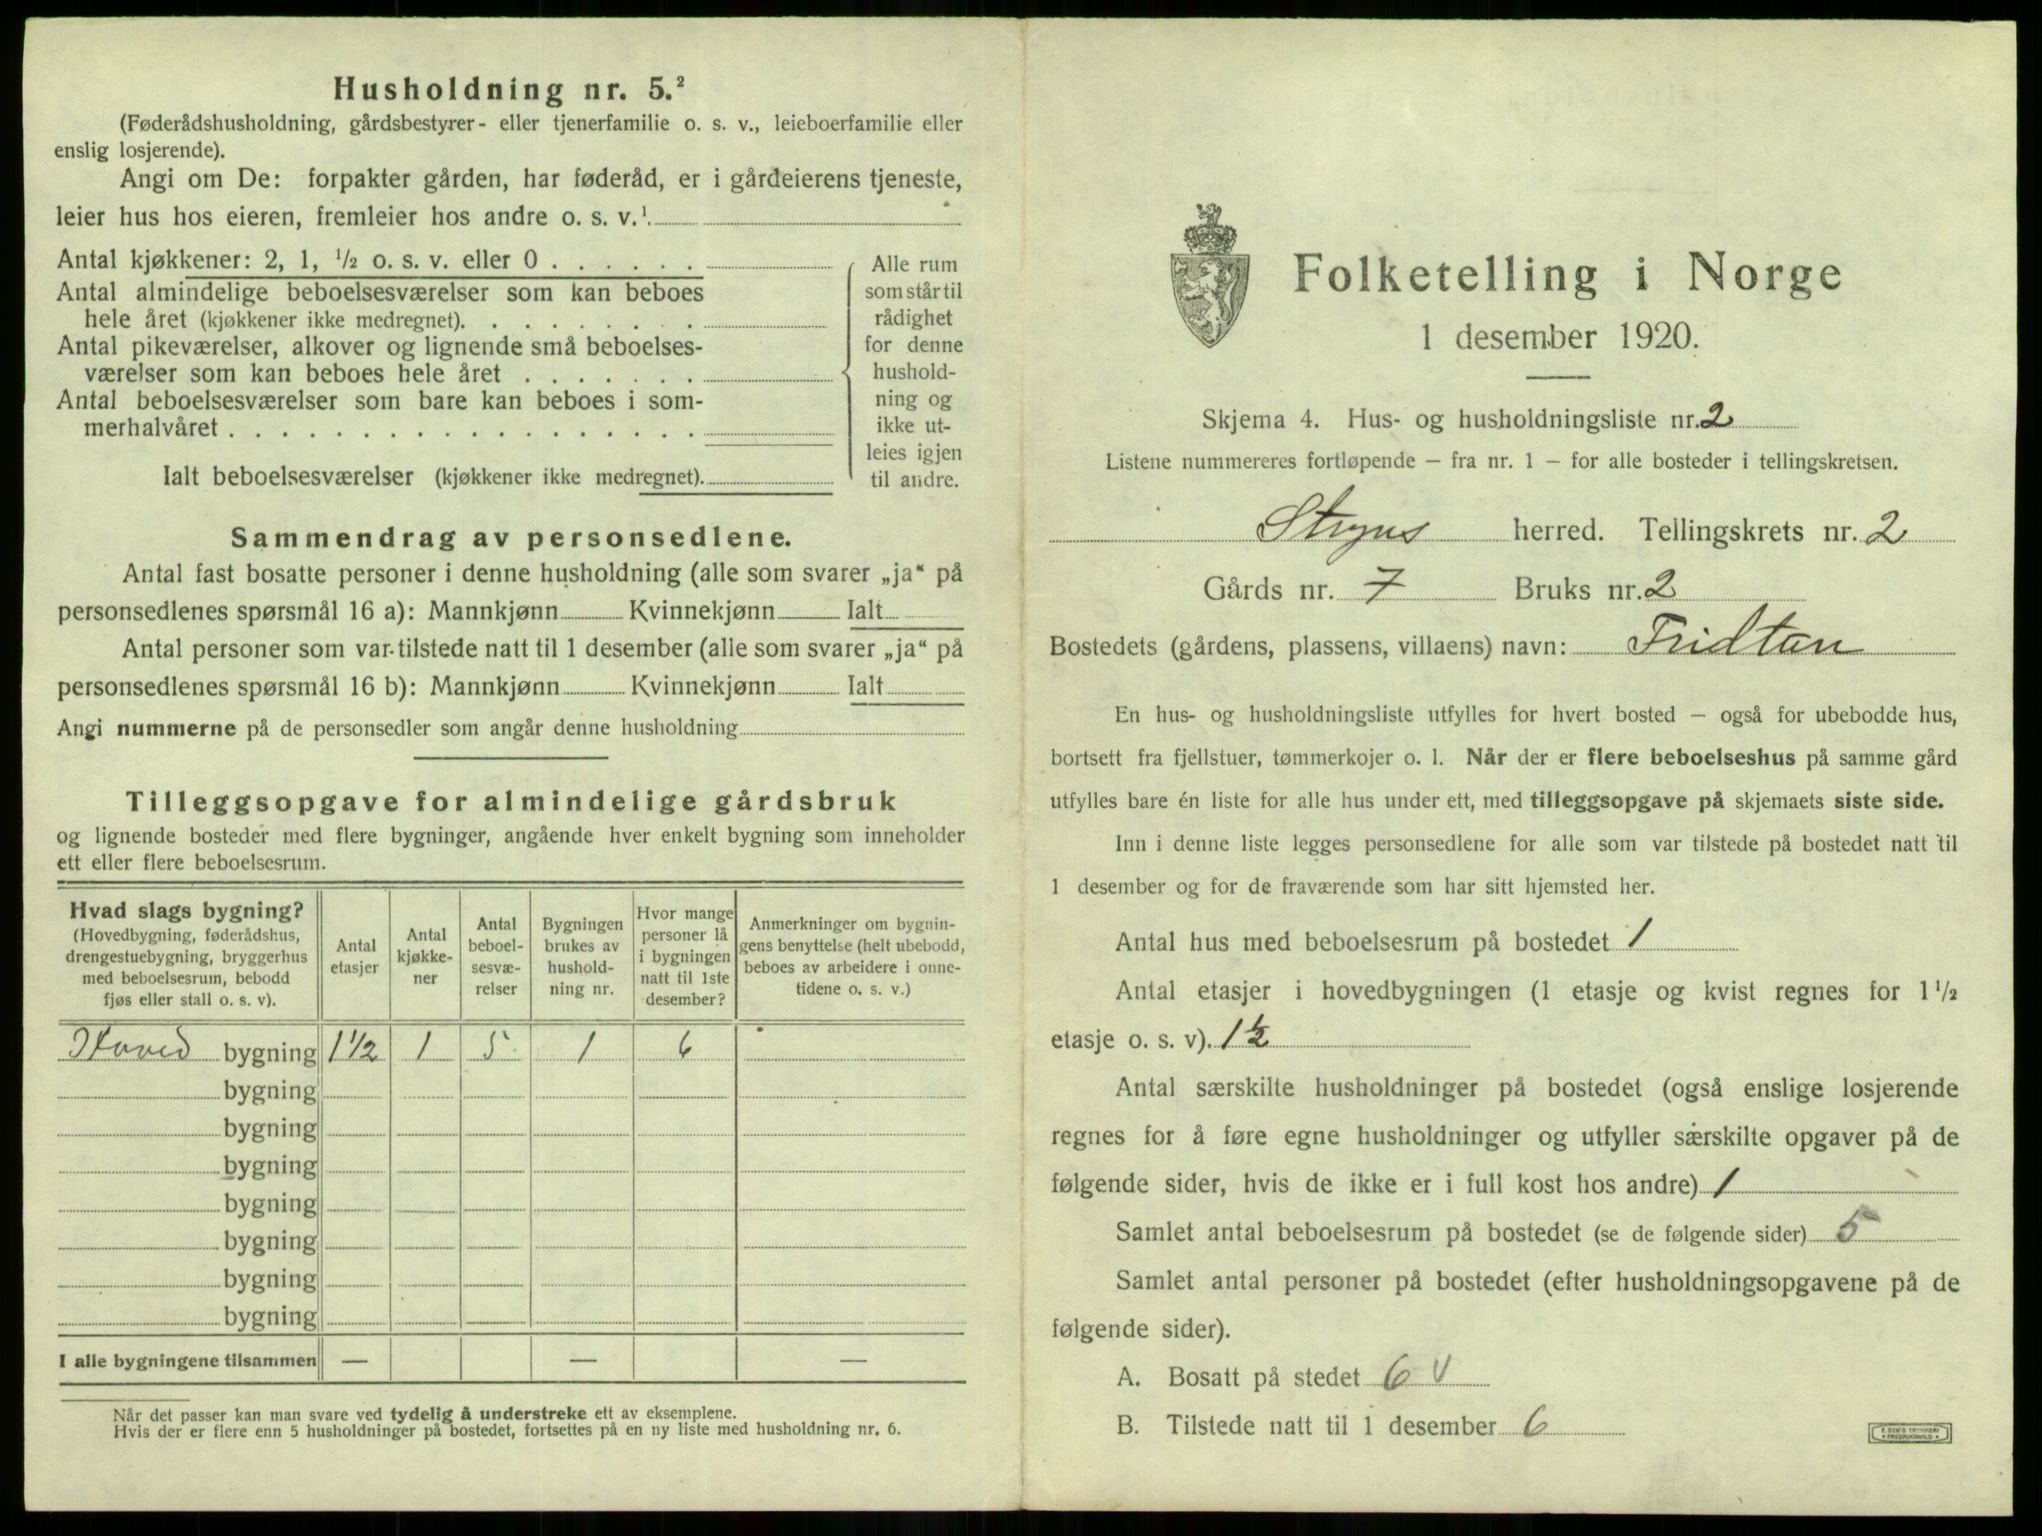 Husholdning nr. 5.²
(Føderådshusholdning, gårdsbestyrer- eller tjenerfamilie o. s. v., leieboerfamilie eller
enslig losjerende).
Angi om De: forpakter gården, har føderåd, er i gårdeierens tjeneste,
leier hus hos eieren, fremleier hos andre o. s. v.¹
Antal kjøkkener: 2, 1, ½ o. s. v. eller 0
Antal almindelige beboelsesværelser som kan beboes
hele året (kjøkkener ikke medregnet).
Antal pikeværelser, alkover og lignende små beboelses-
værelser som kan beboes hele året
Antal beboelsesværelser som bare kan beboes i som-
merhalvåret
Ialt beboelsesværelser (kjøkkener ikke medregnet).
Alle rum
som står til
rådighet
for denne
hushold-
ning og
ikke ut-
leies igjen
til andre.
Sammendrag av personsedlene.
Antal fast bosatte personer i denne husholdning (alle som svarer „ja“ på
personsedlenes spørsmål 16 a): Mannkjønn Kvinnekjønn Ialt
Antal personer som var tilstede natt til 1 desember (alle som svarer „ja“ på
personsedlenes spørsmål 16 b): Mannkjønn Kvinnekjønn Ialt
Angi nummerne på de personsedler som angår denne husholdning
Tilleggsopgave for almindelige gårdsbruk
og lignende bosteder med flere bygninger, angående hver enkelt bygning som inneholder
ett eller flere beboelsesrum.
Hvad slags bygning?
(Hovedbygning, føderådshus,
drengestuebygning, bryggerhus
med beboelsesrum, bebodd
fjøs eller stall o. s. v).
Antal
etasjer
Antal
kjøkke-
ner
Antal
beboel-
sesvæ-
relser
Bygningen
brukes av
hushold-
ning nr.
Hvor mange
personer lå
i bygningen
natt til 1ste
desember?
Anmerkninger om bygnin-
gens benyttelse (helt ubebodd,
beboes av arbeidere i onne-
tidene o. s. v.)
Hoved bygning 1 1/2 1 5 1 6
bygning
bygning
bygning
bygning
bygning
bygning
bygning
I alle bygningene tilsammen — — —
Når det passer kan man svare ved tydelig å understreke ett av eksemplene.
Hvis der er flere enn 5 husholdninger på bostedet, fortsettes på en ny liste med husholdning nr. 6.
Folketelling i Norge
1 desember 1920.
Skjema 4. Hus- og husholdningsliste nr. 2
Listene nummereres fortløpende – fra nr. 1 – for alle bosteder i tellingskretsen.
Stryns herred. Tellingskrets nr. 2
Gårds nr. 7 Bruks nr. 2
Bostedets (gårdens, plassens, villaens) navn: Fridtun
En hus- og husholdningsliste utfylles for hvert bosted – også for ubebodde hus,
bortsett fra fjellstuer, tømmerkojer o. l. Når der er flere beboelseshus på samme gård
utfylles bare én liste for alle hus under ett, med tilleggsopgave på skjemaets siste side.
Inn i denne liste legges personsedlene for alle som var tilstede på bostedet natt til
1 desember og for de fraværende som har sitt hjemsted her.
Antal hus med beboelsesrum på bostedet 1
Antal etasjer i hovedbygningen (1 etasje og kvist regnes for 1½
etasje o. s. v). 1½
Antal særskilte husholdninger på bostedet (også enslige losjerende
regnes for å føre egne husholdninger og utfyller særskilte opgaver på de
følgende sider, hvis de ikke er i full kost hos andre) 1
Samlet antal beboelsesrum på bostedet (se de følgende sider) 5
Samlet antal personer på bostedet (efter husholdningsopgavene på de
følgende sider).
A. Bosatt på stedet 6 v
B. Tilstede natt til 1 desember 6
E. SEM'S TRYKKERI
FREDRIKSHALD